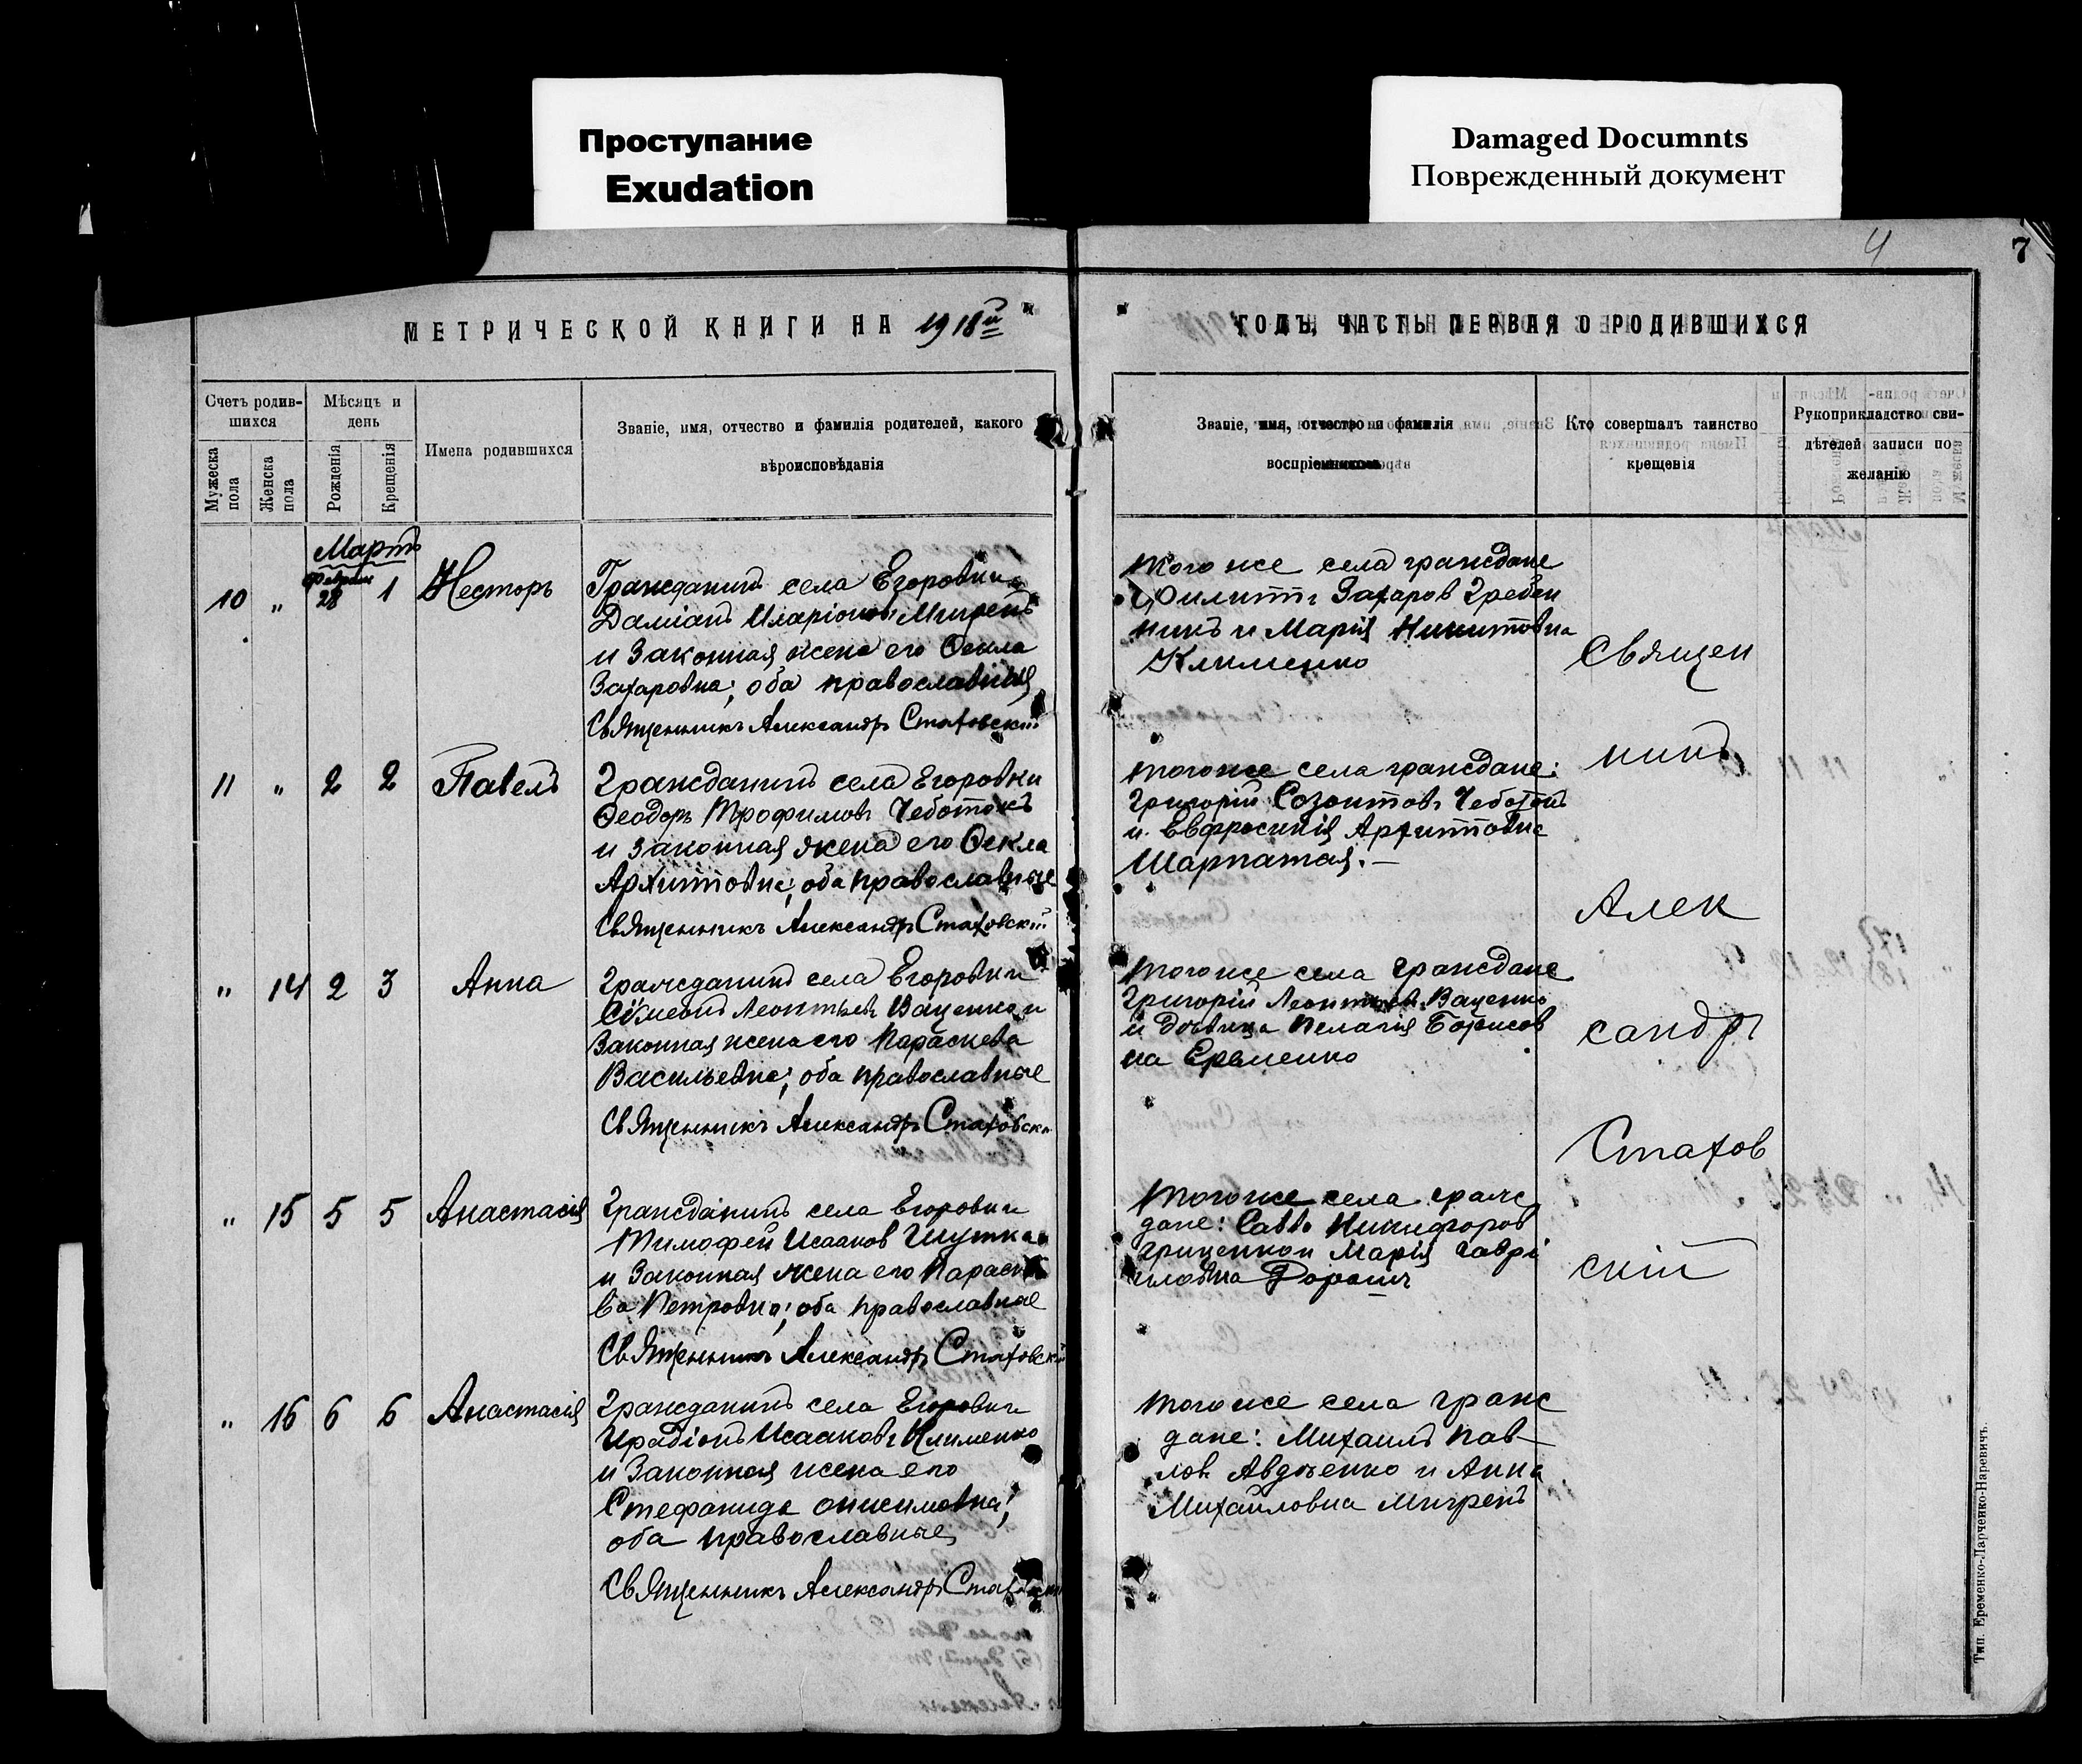 Проступание
Exudation
Damaged Documnts
Поврежденный документ
4
7
МЕТРИЧЕСКОЙ КНИГИ НА 1918й
ГОДЪ, ЧАСТЬ ПЕРВАЯ О РОДИВШИХСЯ
Счетъ родив-
шихся
Мѣсяцъ и
день
Мужеска
пола
Женска
пола
Рожденія
Крещенія
Имена родившихся
Званіе, имя, отчество и фамилія родителей, какого
вѣроисповѣданія
Званіе, имя, отчество и фамилія
воспріемниковъ
Кто совершалъ таинство
крещенія
Рукоприкладство сви-
дѣтелей записи по
желанію
Мартъ
10 „ Февраля 28 1 Несторъ
Гражданинъ села Егоровки
Даміанъ Иларіоновъ Мигрень
и законная жена его Ѳекла
Захаровна; оба православные
Священникъ Александръ Стаховскій
того же села граждане
Филиппъ Захаров Гребен
никъ и Марія Никитовна
Клименко
11 „ 2 2 Павелъ
Гражданинъ села Егоровки
Ѳеодоръ Трофимовъ Чеботокъ
и законная жена его Ѳекла
Архиповна; оба православные
Священникъ Александръ Стаховскій
того же села граждане:
Григорій Созонтовъ Чеботокъ
и Евфросинія Архиповна
Шарпатая.—
„ 14 2 3 Анна
Гражданинъ села Егоровки
Сѵмеонъ Леонтьевъ Ваценко и
законная жена его Параскева
Васильевна; оба православные
Священникъ Александръ Стаховскі
того же села граждане
Григорій Леонтьевъ Ваценко
и дѣвица Пелагія Борисов
на Еременко
„ 15 5 5 Анастасія
Гражданинъ села Егоровки
Тимофей Исааков Шутка
и законная жена его Параске
ва Петровна; оба православные
Священникъ Александръ Стаховскій
того же села граж
дане: Савва Никифоров
Гриценко и Марія Гаврі
иловна Дорошъ
„ 16 6 6 Анастасія
Гражданинъ села Егоровки
Иродіонъ Исааковъ Клименко
и законная жена его
Стефанида Онисимовна;
оба православные
Священникъ Александръ Стаховскій
того же села граж
дане: Михаилъ Пав-
лов Авдѣенко и Анна
Михайловна Мигрень
Священ
никъ
Алек
сандръ
Стахов
скій
Тип. Еременко-Ларченко-Наревичъ.